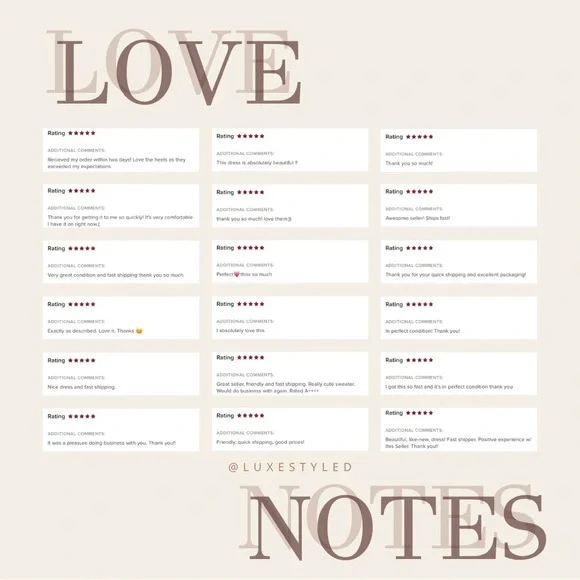 LOVE
Rating ★★★★★
ADDITIONAL COMMENTS:
Recieved my order within two days! Love the heels as they
exceeded my expectations
Rating ★★★★★
ADDITIONAL COMMENTS:
Thank you for getting it to me so quickly! It's very comfortable
I have it on right now;)
Rating ★★★★★
ADDITIONAL COMMENTS:
Very great condition and fast shipping thank you so much
Rating ★★★★★
ADDITIONAL COMMENTS:
Exactly as described. Love it. Thanks 😊
Rating ★★★★★
ADDITIONAL COMMENTS:
Nice dress and fast shipping.
Rating ★★★★★
ADDITIONAL COMMENTS:
It was a pleasure doing business with you. Thank you!!
Rating ★★★★★
ADDITIONAL COMMENTS:
This dress is absolutely beautiful !!
Rating ★★★★★
ADDITIONAL COMMENTS:
thank you so much! love them:))
Rating ★★★★★
ADDITIONAL COMMENTS:
Perfect💗thnx so much
Rating ★★★★★
ADDITIONAL COMMENTS:
I absolutely love this
Rating ★★★★★
ADDITIONAL COMMENTS:
Great seller, friendly and fast shipping. Really cute sweater.
Would do business with again. Rated A++++
Rating ★★★★★
ADDITIONAL COMMENTS:
Friendly, quick shipping, good prices!
Rating ★★★★★
ADDITIONAL COMMENTS:
Thank you so much!
Rating ★★★★★
ADDITIONAL COMMENTS:
Awesome seller! Ships fast!
Rating ★★★★★
ADDITIONAL COMMENTS:
Thank you for your quick shipping and excellent packaging!
Rating ★★★★★
ADDITIONAL COMMENTS:
In perfect condition! Thank you!
Rating ★★★★★
ADDITIONAL COMMENTS:
I got this so fast and it's in perfect condition thank you
Rating ★★★★★
ADDITIONAL COMMENTS:
Beautiful, like-new, dress! Fast shipper. Positive experience w/
this Seller. Thank you!!
@LUXESTYLED
NOTES